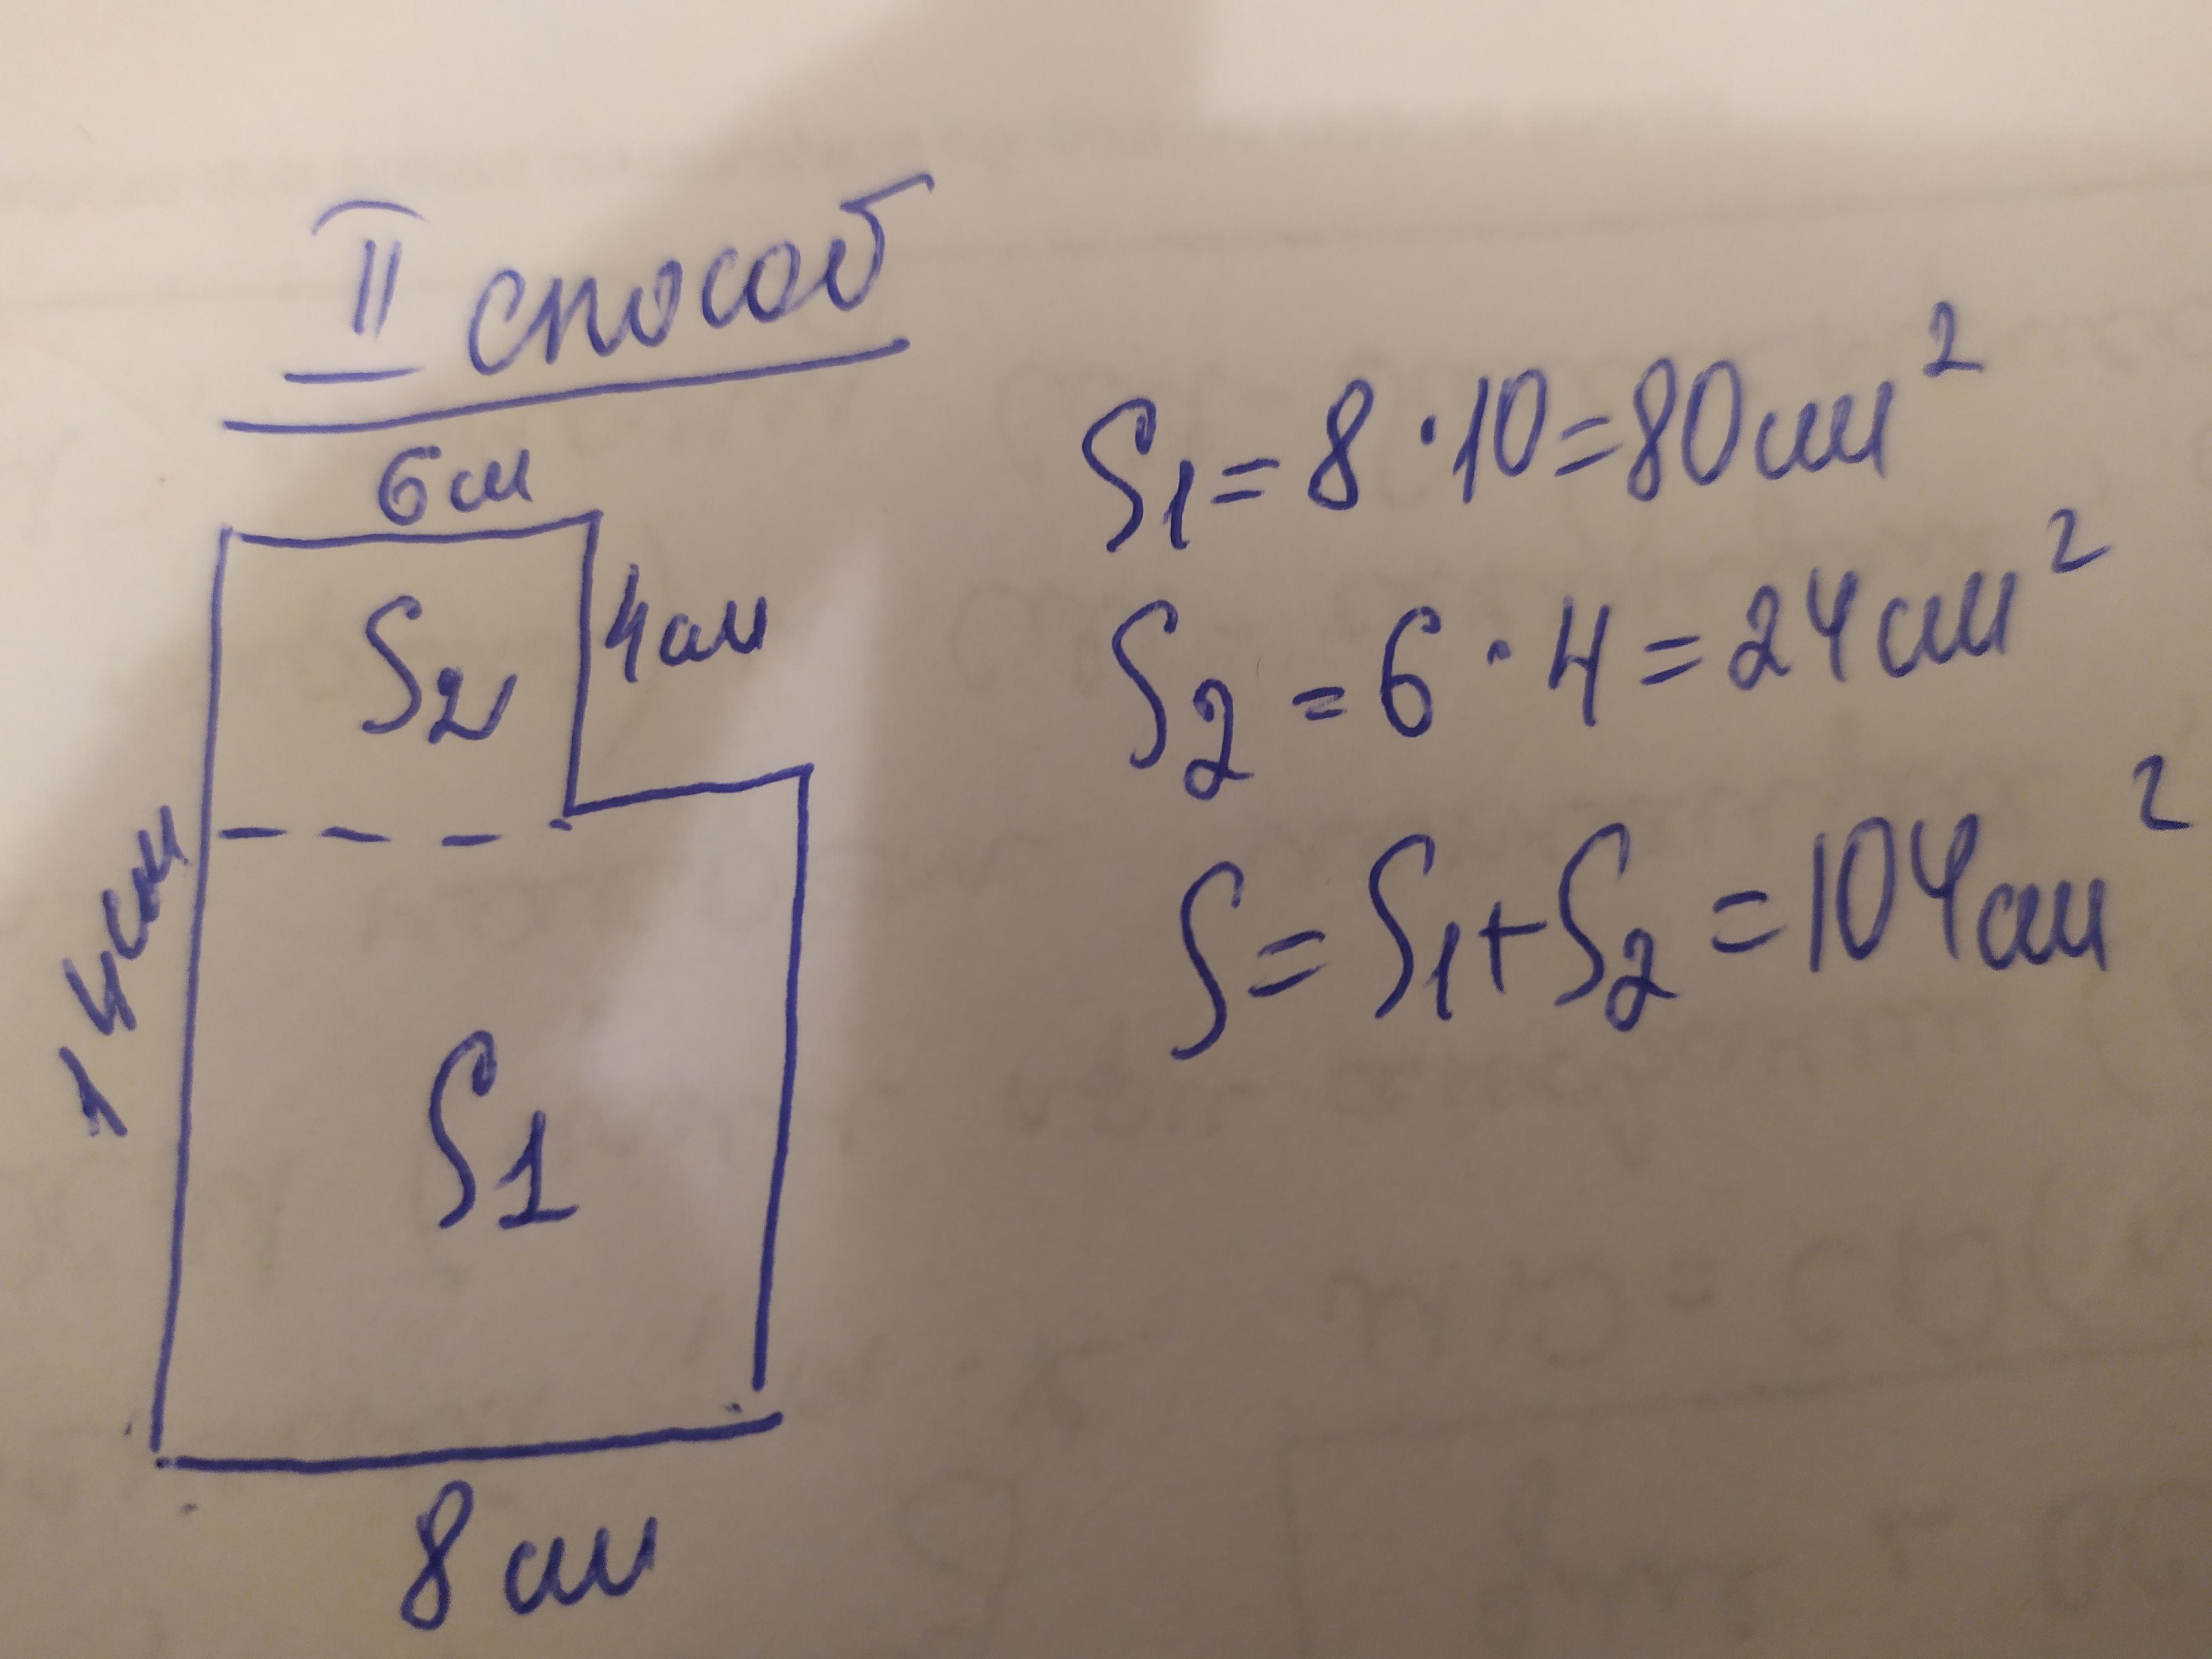 II способ
6 см
S₂
4 см
14 см
S₁
8 см
S₁ = 8 · 10 = 80 см²
S₂ = 6 · 4 = 24 см²
S = S₁ + S₂ = 104 см²